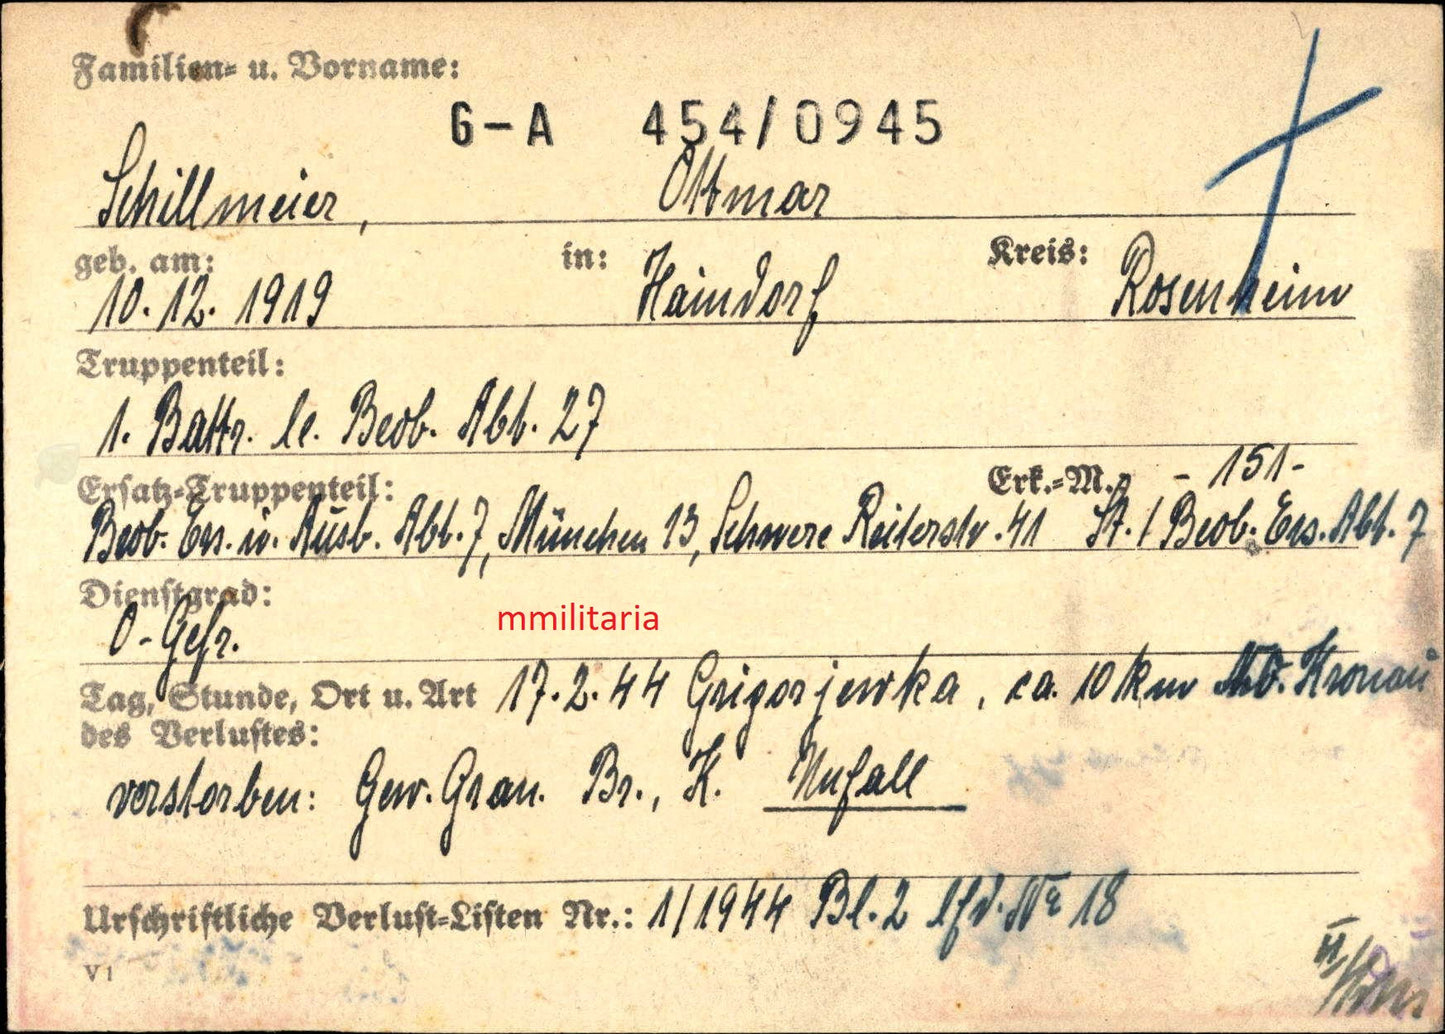 Familien- u. Vorname:
G-A 454/0945
Schillmeier, Ottmar
geb. am: in: Kreis:
10.12.1919 Haindorf Rosenheim
Truppenteil:
1. Battr. le. Beob. Abt. 27
Ersatz-Truppenteil: Erk.-M. - 151-
Beob. Ers. u. Ausb. Abt. 7, München 13, Schwere Reiterstr. 41 St. / Beob. Ers. Abt. 7
Dienstgrad:
O-Gefr.
mmilitaria
Tag, Stunde, Ort u. Art 17.2.44 Grigorjewka, ca. 10 km Kronau
des Verlustes:
verstorben: Gew. Gran. Br., K. Unfall
Urschriftliche Verlust-Listen Nr.: 1/1944 Bl. 2 lfd. Nr 18
V 1
II/